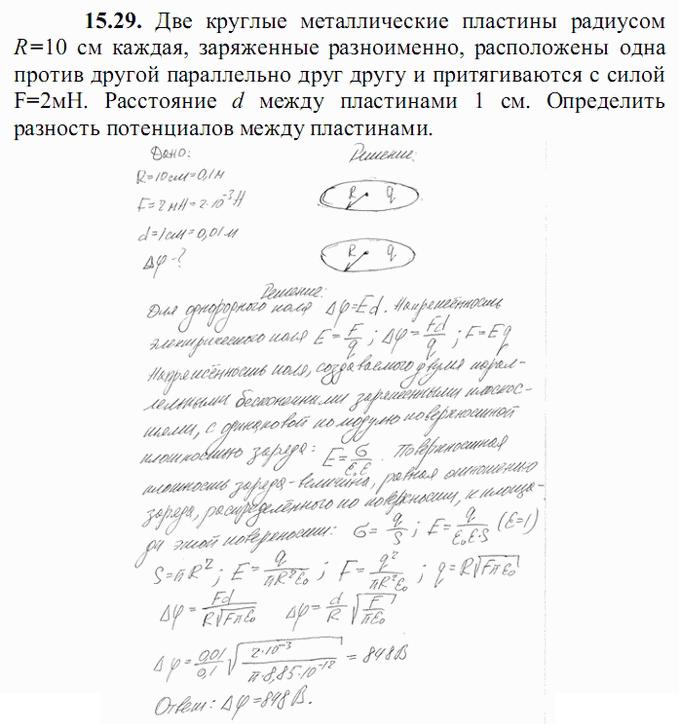 15.29. Две круглые металлические пластины радиусом
R=10 см каждая, заряженные разноименно, расположены одна
против другой параллельно друг другу и притягиваются с силой
F=2мН. Расстояние d между пластинами 1 см. Определить
разность потенциалов между пластинами.
Дано: Решение:
R=10см=0,1м
F=2мН=2·10⁻³Н
d=1см=0,01м
Δφ-?
R q
R q
Решение:
Для однородного поля Δφ=Ed. Напряжённость
электрического поля E=F/q; Δφ=Fd/q; F=Eq
Напряжённость поля, создаваемого двумя парал-
лельными бесконечными заряженными плоскос-
тями, с одинаковой по модулю поверхностной
плотностью заряда: E=σ/ε₀ε. Поверхностная
плотность заряда-величина, равная отношению
заряда, распределённого по поверхности, к площа-
ди этой поверхности: σ=q/S; E=q/ε₀εS (ε=1)
S=πR²; E=q/πR²ε₀; F=q²/πR²ε₀; q=R√Fπε₀
Δφ=Fd/R√Fπε₀ Δφ=d/R √F/πε₀
Δφ=0,01/0,1 √2·10⁻³/π·8,85·10⁻¹² = 848В
Ответ: Δφ=848В.